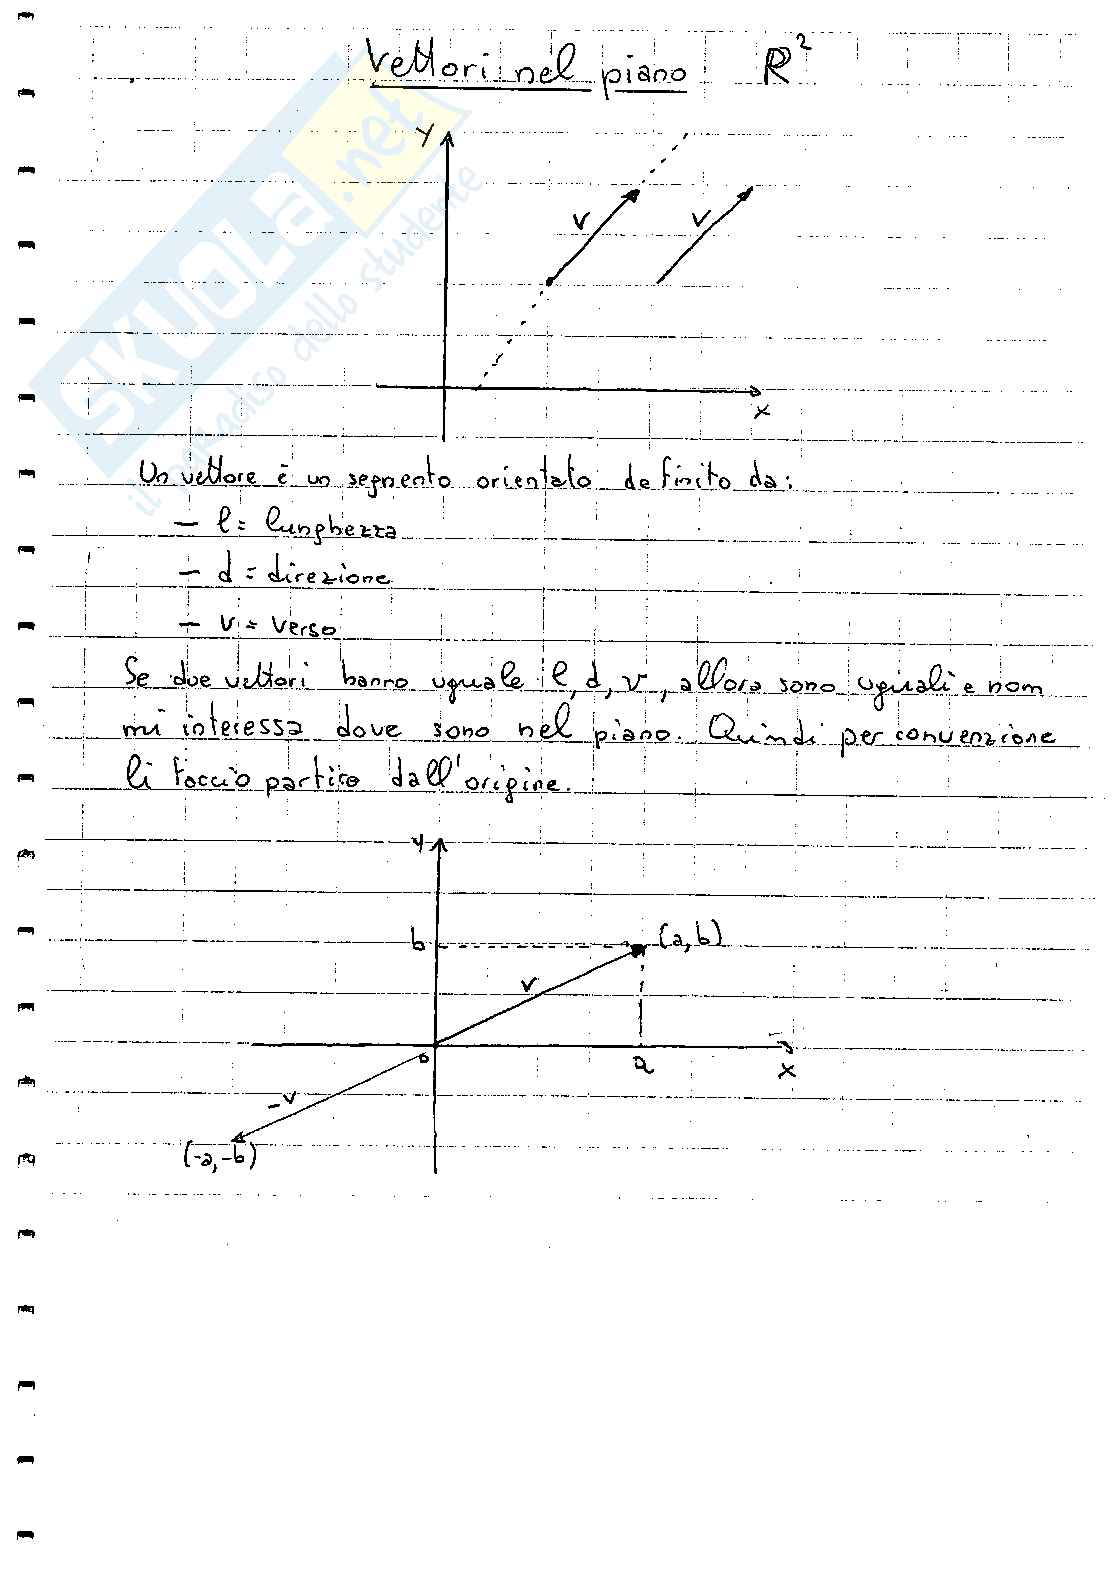 Vettori nel piano ℝ²
y
v
v
x
Un vettore è un segmento orientato definito da:
– l = lunghezza
– d = direzione
– v = verso
Se due vettori hanno uguale l, d, v, allora sono uguali e non
mi interessa dove sono nel piano. Quindi per convenzione
li faccio partire dall'origine.
y
b
(a, b)
v
o
a
x
-v
(-a, -b)
SKUOLA.net
il paradiso dello studente